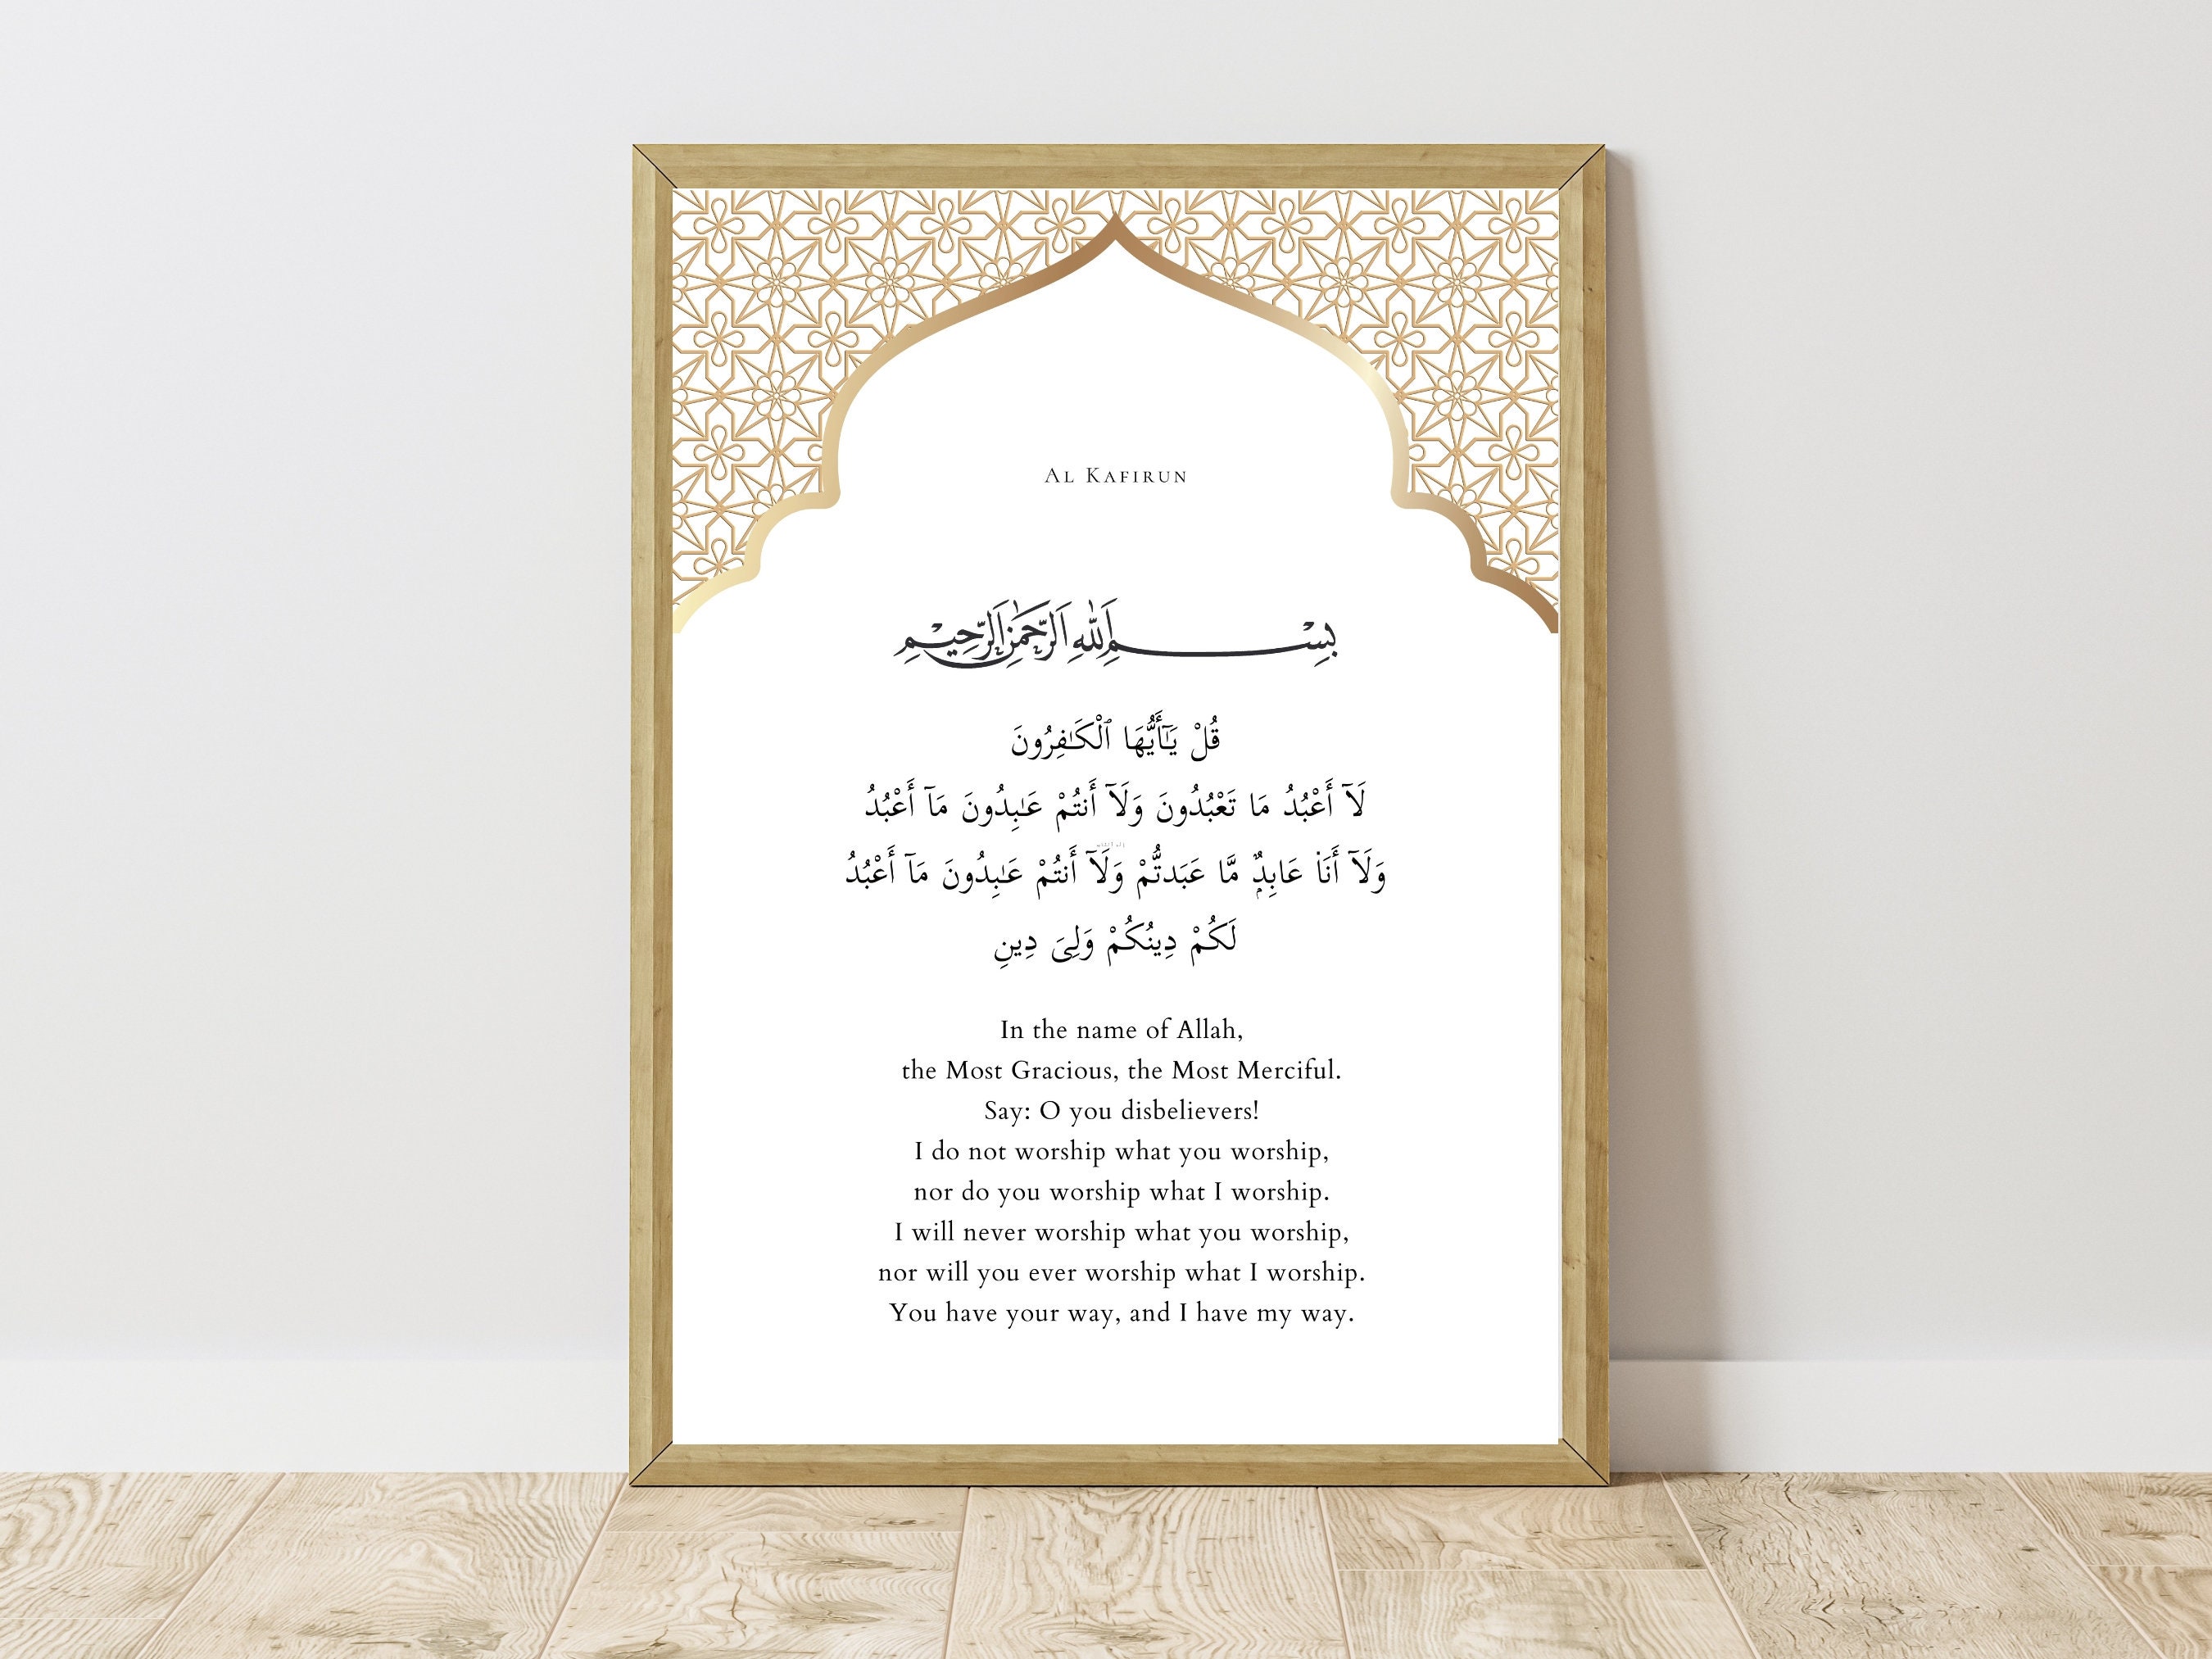 Al Kafirun
بِسْمِ اللهِ الرَّحْمَٰنِ الرَّحِيمِ
قُلْ يَـٰٓأَيُّهَا ٱلْكَـٰفِرُونَ
لَآ أَعْبُدُ مَا تَعْبُدُونَ وَلَآ أَنتُمْ عَـٰبِدُونَ مَآ أَعْبُدُ
وَلَآ أَنَا۠ عَابِدٌۭ مَّا عَبَدتُّمْ وَلَآ أَنتُمْ عَـٰبِدُونَ مَآ أَعْبُدُ
لَكُمْ دِينُكُمْ وَلِىَ دِينِ
In the name of Allah,
the Most Gracious, the Most Merciful.
Say: O you disbelievers!
I do not worship what you worship,
nor do you worship what I worship.
I will never worship what you worship,
nor will you ever worship what I worship.
You have your way, and I have my way.